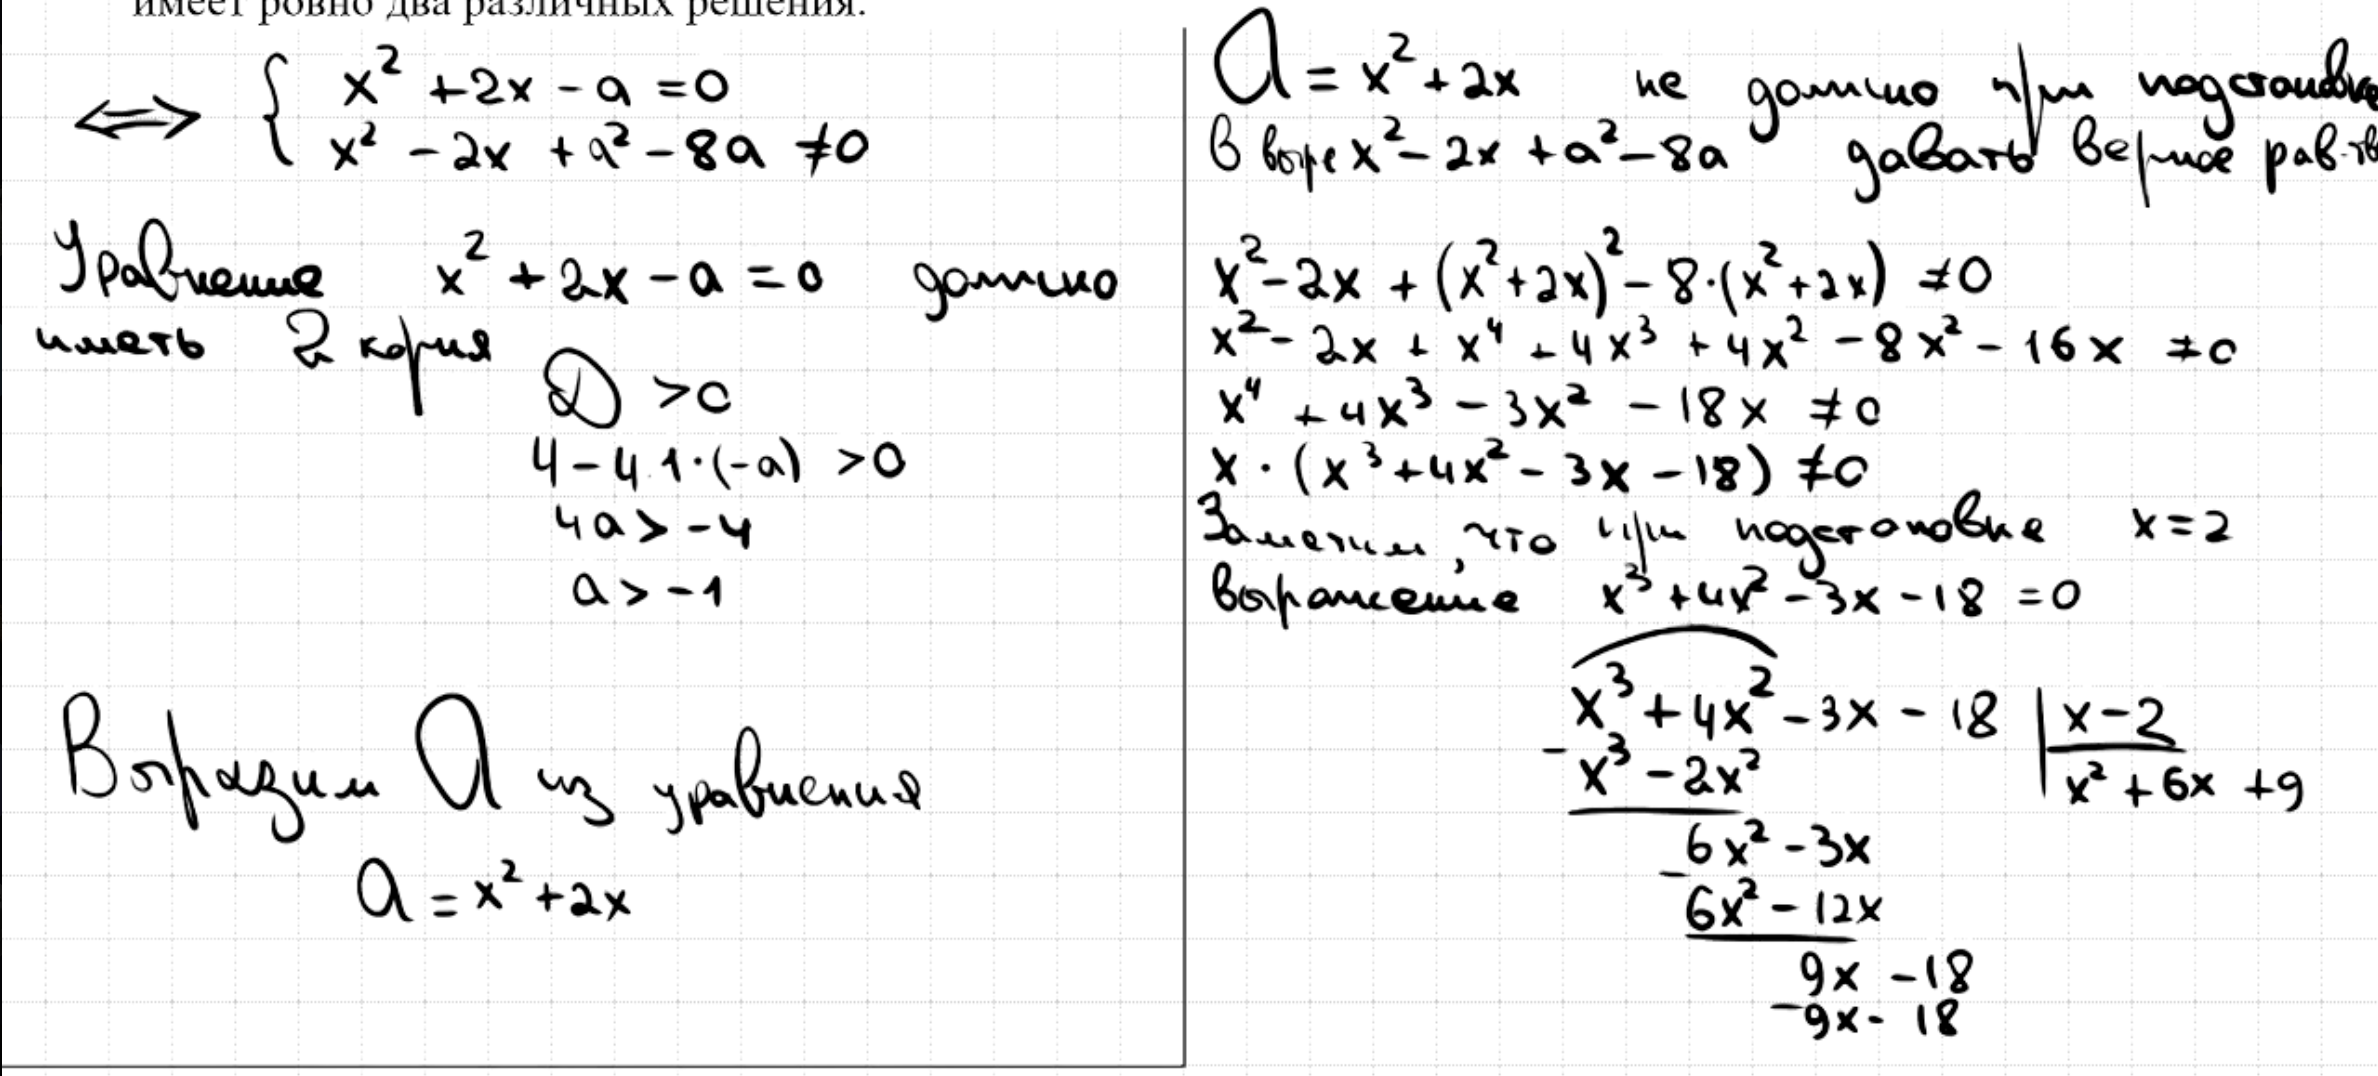 имеет ровно два различных решения.
⟺ { x² + 2x - a = 0
x² - 2x + a² - 8a ≠ 0
Уравнение x² + 2x - a = 0 должно
иметь 2 корня
D > 0
4 - 4·1·(-a) > 0
4a > -4
a > -1
Выразим a из уравнения
a = x² + 2x
a = x² + 2x не должно при подстановке
в выр-е x² - 2x + a² - 8a давать верное рав-тв
x² - 2x + (x² + 2x)² - 8·(x² + 2x) ≠ 0
x² - 2x + x⁴ + 4x³ + 4x² - 8x² - 16x ≠ 0
x⁴ + 4x³ - 3x² - 18x ≠ 0
x · (x³ + 4x² - 3x - 18) ≠ 0
Заметим, что при подстановке x = 2
выражение x³ + 4x² - 3x - 18 = 0
x³ + 4x² - 3x - 18 | x - 2
- x³ - 2x² | x² + 6x + 9
6x² - 3x
- 6x² - 12x
9x - 18
- 9x - 18